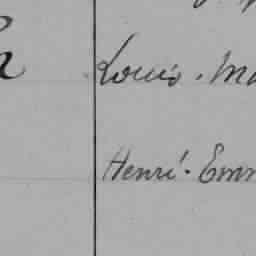 Louis. Ma
Henri. Emm